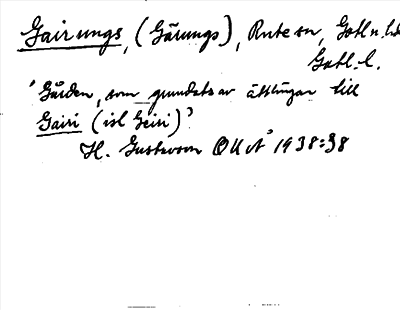 Gairungs, (Gärungs), Rute sn, Gotl. n. hd
Gotl. l.
"Gården, som grundats av ättlingar till
Gairi (isl Geiri)"
H. Gustavson 1938:38